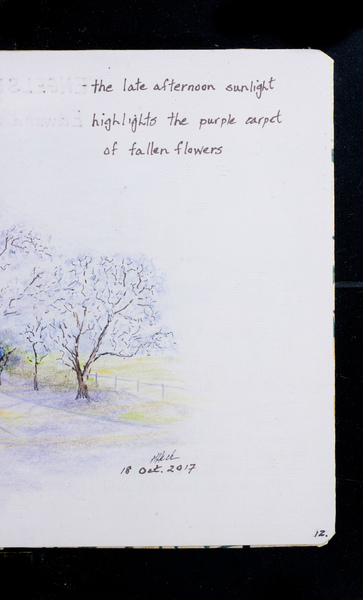 the late afternoon sunlight
highlights the purple carpet
of fallen flowers
18 Oct. 2017
12.